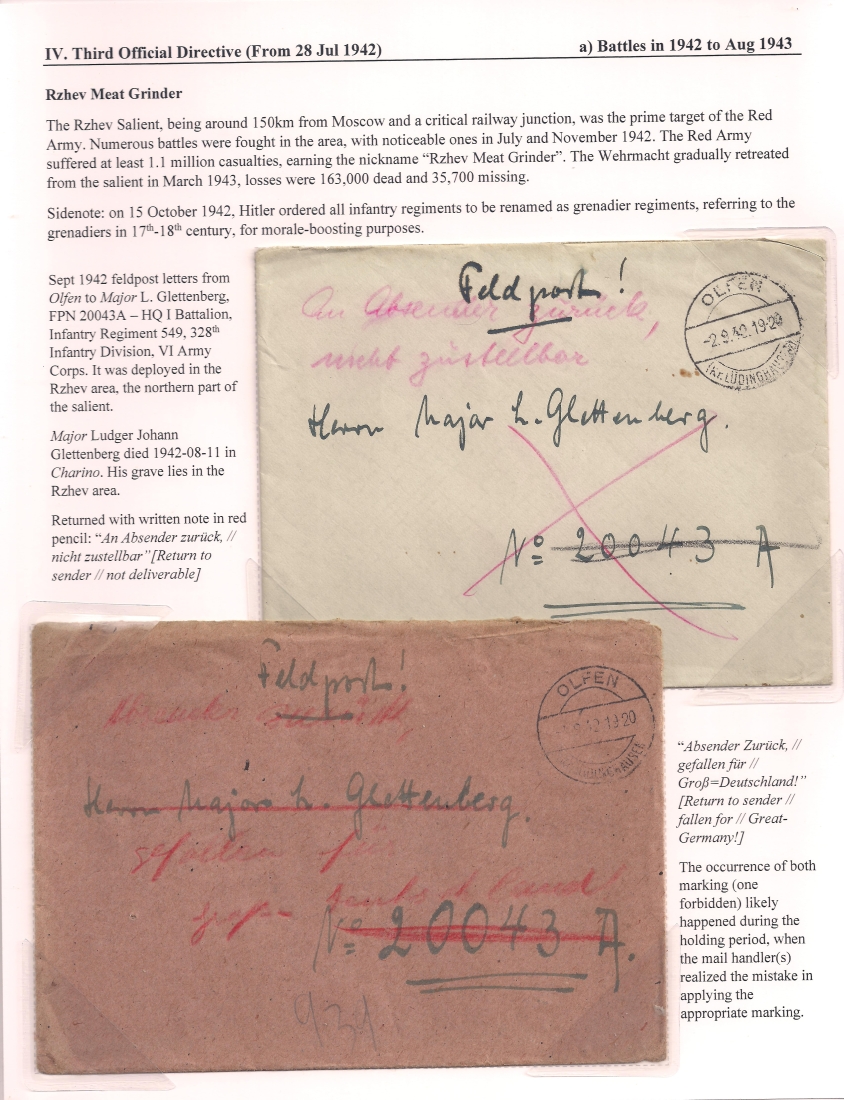 IV. Third Official Directive (From 28 Jul 1942)
a) Battles in 1942 to Aug 1943
Rzhev Meat Grinder
The Rzhev Salient, being around 150km from Moscow and a critical railway junction, was the prime target of the Red
Army. Numerous battles were fought in the area, with noticeable ones in July and November 1942. The Red Army
suffered at least 1.1 million casualties, earning the nickname “Rzhev Meat Grinder”. The Wehrmacht gradually retreated
from the salient in March 1943, losses were 163,000 dead and 35,700 missing.
Sidenote: on 15 October 1942, Hitler ordered all infantry regiments to be renamed as grenadier regiments, referring to the
grenadiers in 17th-18th century, for morale-boosting purposes.
Sept 1942 feldpost letters from
Olfen to Major L. Glettenberg,
FPN 20043A – HQ I Battalion,
Infantry Regiment 549, 328th
Infantry Division, VI Army
Corps. It was deployed in the
Rzhev area, the northern part of
the salient.
Major Ludger Johann
Glettenberg died 1942-08-11 in
Charino. His grave lies in the
Rzhev area.
Returned with written note in red
pencil: “An Absender zurück, //
nicht zustellbar”[Return to
sender // not deliverable]
Feldpost!
An Absender zurück,
nicht zustellbar
OLFEN
-2.9.42.19-20
(Kr. LÜDINGHAUSEN)
Herrn Major L. Glettenberg.
No 20043 A
Feldpost!
Absender zurück,
OLFEN
42 19 20
Herrn Major L. Glettenberg.
gefallen für
Groß=Deutschland!
No 20043 A.
“Absender Zurück, //
gefallen für //
Groß=Deutschland!”
[Return to sender //
fallen for // Great-
Germany!]
The occurrence of both
marking (one
forbidden) likely
happened during the
holding period, when
the mail handler(s)
realized the mistake in
applying the
appropriate marking.